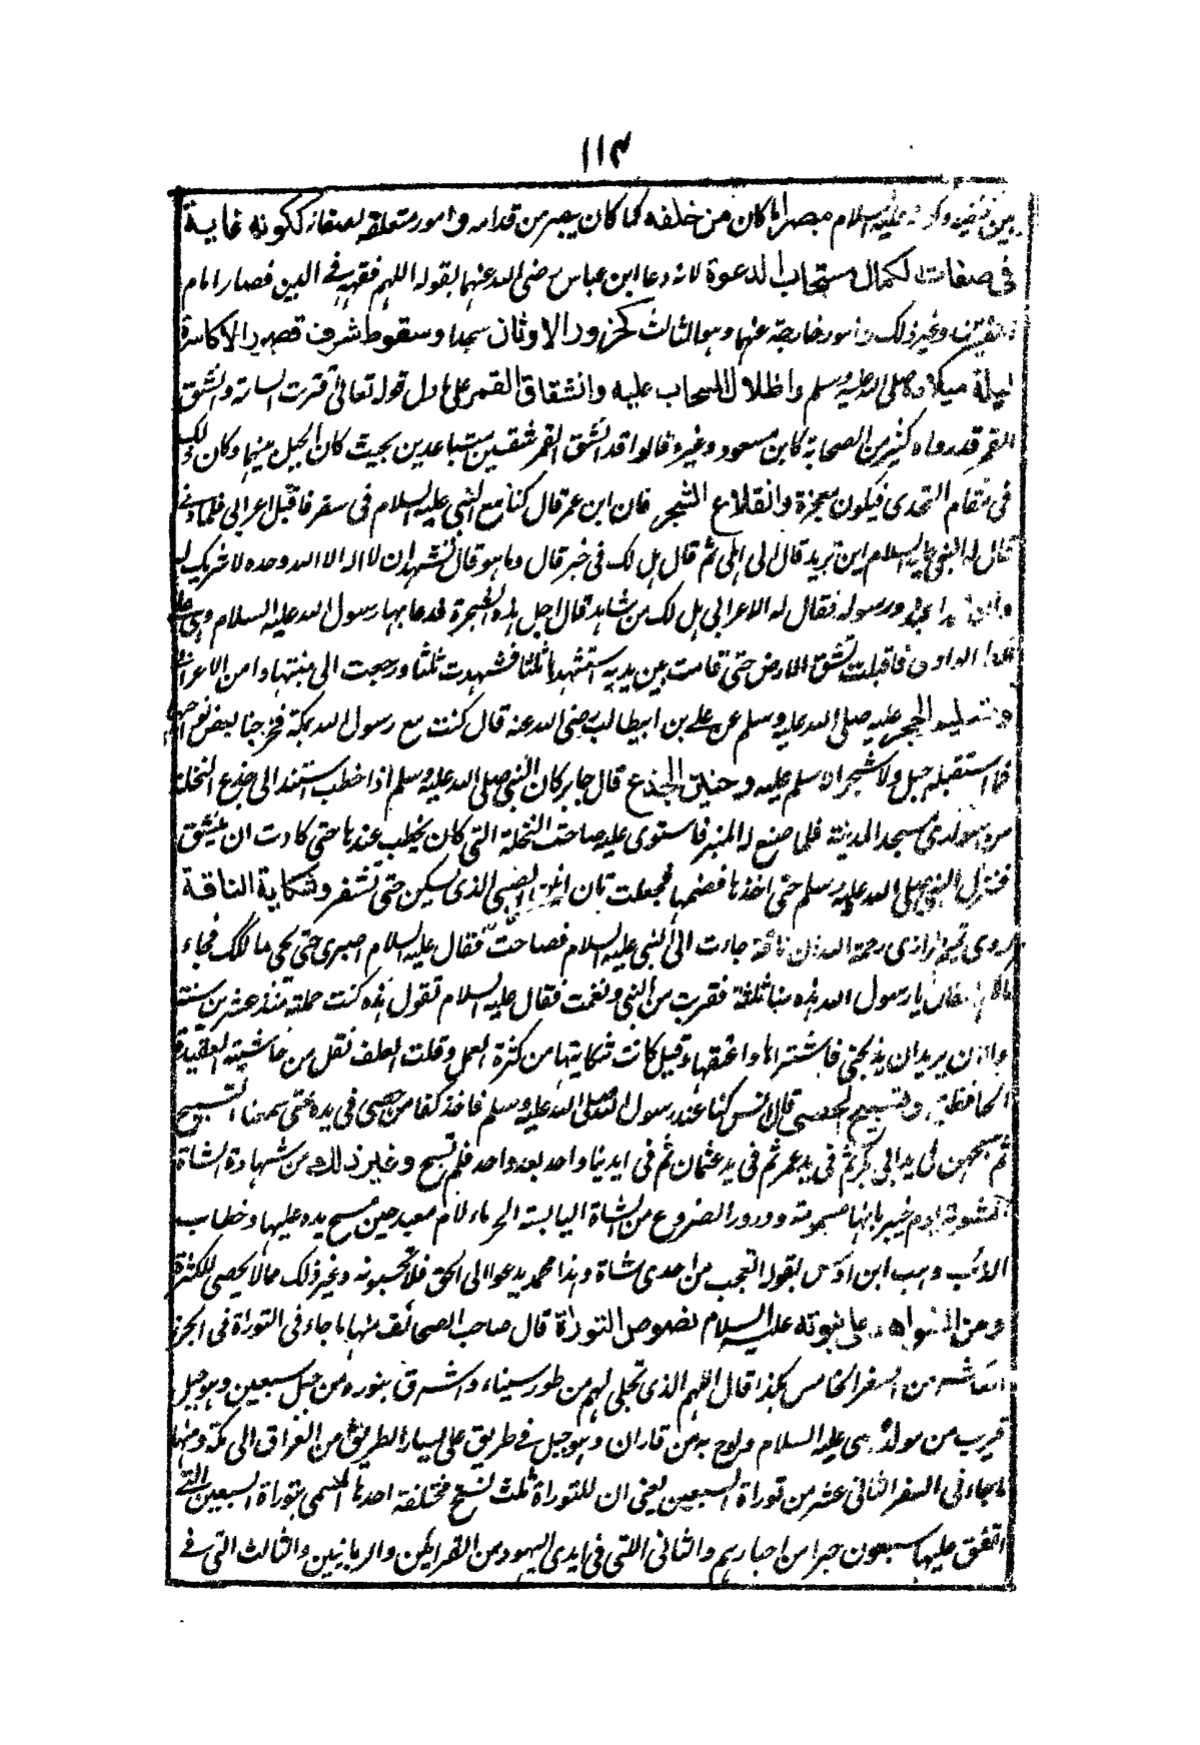 ١١٣
بين كتفيه وكونه عليه السلام مبصرا ما كان من خلفه كما كان يبصر من قدامه وامور متعلقة بصفاته ككونه غاية
فى صفات الكمال مستجاب الدعوة لانه دعا ابن عباس رضى الله عنهما بقوله اللهم فقهه فى الدين فصار امام
وغير ذلك وامور خارجة عنها وهو الثالث كخرور الاوثان سجدا وسقوط شرف قصور الاكاسرة
ليلة ميلاده صلى الله عليه وسلم واظلال السحاب عليه وانشقاق القمر على ما دل قوله تعالى اقتربت الساعة وانشق
القمر قد رواه كثير من الصحابة كابن مسعود وغيره قالوا قد انشق القمر شقين متباعدين بحيث كان الجبل بينهما وكان ذلك
فى مقام التحدى فيكون معجزة وانقلاع الشجر فان ابن عمر قال كنا مع النبي عليه السلام فى سفر فاقبل اعرابي فلما دنى
قال له النبي عليه السلام اين تريد قال الى اهلى ثم قال هل لك فى خير قال وما هو قال تشهد ان لا اله الا الله وحده لا شريك له
وان محمدا عبده ورسوله فقال له الاعرابي هل لك من شاهد قال اجل هذه الشجرة فدعا بها رسول الله عليه السلام وهى على
الوادى فاقبلت تشق الارض حتى قامت بين يديه استشهدها ثلثا فشهدت ثلثا ورجعت الى منبتها وامن الاعرابي
وتسليم الحجر عليه صلى الله عليه وسلم عن على بن ابيطالب رضى الله عنه قال كنت مع رسول الله بمكة فخرجنا لبعض نواحيها
فما استقبله جبل ولا شجر الا سلم عليه وحنين الجذع قال جابر كان النبي صلى الله عليه وسلم اذا خطب استند الى جذع النخلة
من سوارى مسجد المدينة فلما صنع له المنبر فاستوى عليه صاحت النخلة التى كان يخطب عندها حتى كادت ان ينشق
فنزل النبي صلى الله عليه وسلم حتى اخذها فضمها فجعلت تان انين الصبي الذى يسكن حتى تستقر وشكاية الناقة
روى رازى رحمة الله ان ناقة جاءت الى النبي عليه السلام فصاحت فقال عليه السلام اصبرى حتى يجى مالكك فجاء
مالكها فقال يا رسول الله هذه مناثلثة فقربت من النبي ونغمت فقال عليه السلام تقول هذه كنت حملته منذ عشرين سنة
والان يريدان يذبحنى فاشتراها واعتقها وقيل كانت شكايتها من كثرة العمل وقلت العلف نقل من حاشية العقيدة
الحافظية وتسبيح الحصى قال انس كنا عند رسول الله صلى الله عليه وسلم فاخذ كفا من حصى فى يده حتى سمعنا التسبيح
ثم سبحن فى يد ابى بكر ثم فى يد عمر ثم فى يد عثمان ثم فى ايدينا واحد بعد واحد فلم تسبح وغير ذلك من شهادة الشاة
المشوية يوم خيبر بانها مسمومة ودرور الضروع من الشاة اليابسة الجرباء لام معبد حين مسح يده عليها وخطاب
الذئب وهب ابن اوس بقوله اتعجب من اخذى شاة وهذا محمد يدعوا الى الحق فلا تجيبونه وغير ذلك مما لا يحصى للكثرة
ومن الشواهد على نبوته عليه السلام نصوص التوراة قال صاحب الصحائف منها ما جاء فى التوراة فى الجزء
العاشر من السفر الخامس هكذا قال اللهم الذى تجلى لهم من طور سيناء واشرق بنوره من جبل سبعين وهو جبل
قريب من مولد عيسى عليه السلام ولوح به من فاران وهو جبل فى طريق على يسار الطريق من العراق الى مكة ومنها
ما جاء فى السفر الثانى عشر من توراة السبعين يعنى ان للتوراة ثلث نسخ مختلفة احدها المسمى بتوراة السبعين التى
اتفق عليها سبعون حبرا من احبارهم والثانى اللتى فى ايدى اليهود من القرائين والربانيين والثالث التى فى